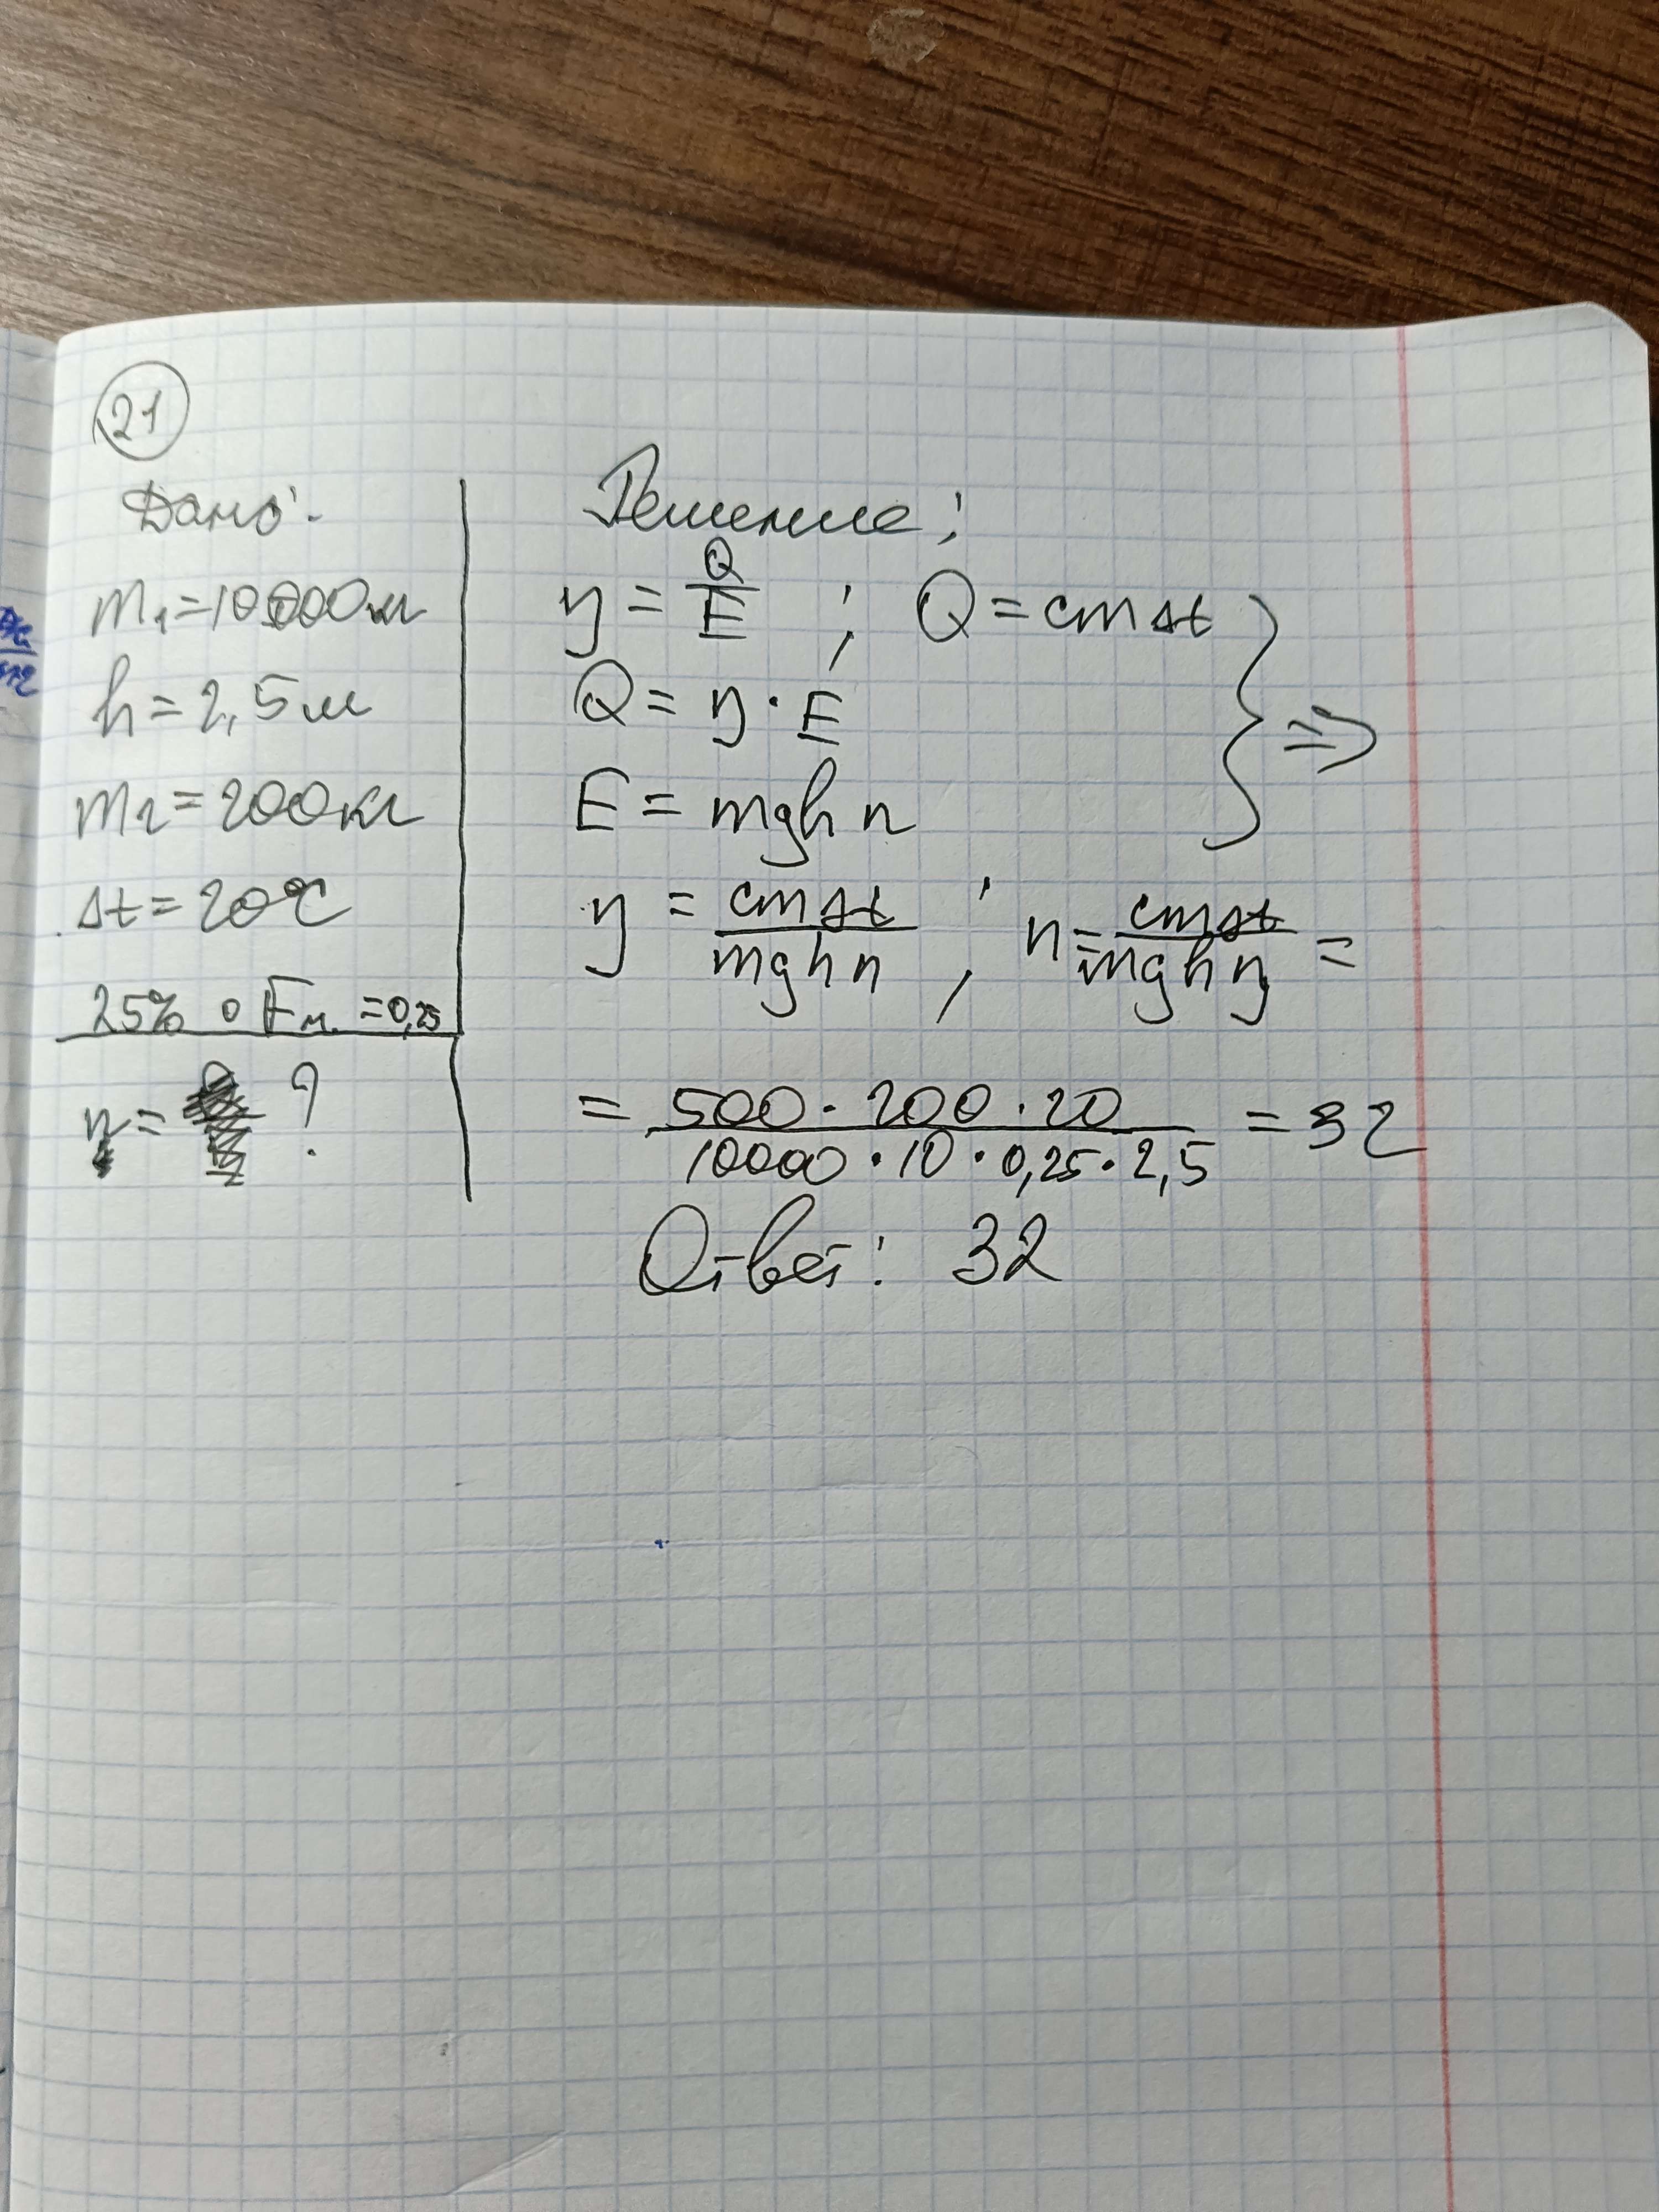 21
Дано:
m₁ = 10000 кг
h = 2,5 м
m₂ = 200 кг
Δt = 20°C
25% о Eм. = 0,25
n = ?
Решение:
η = Q/E ; Q = cmΔt
Q = η · E
E = mghn
} ⇒
η = cmΔt/mghn ; n = cmΔt/mghη =
= 500 · 200 · 20/10000 · 10 · 0,25 · 2,5 = 32
Ответ: 32